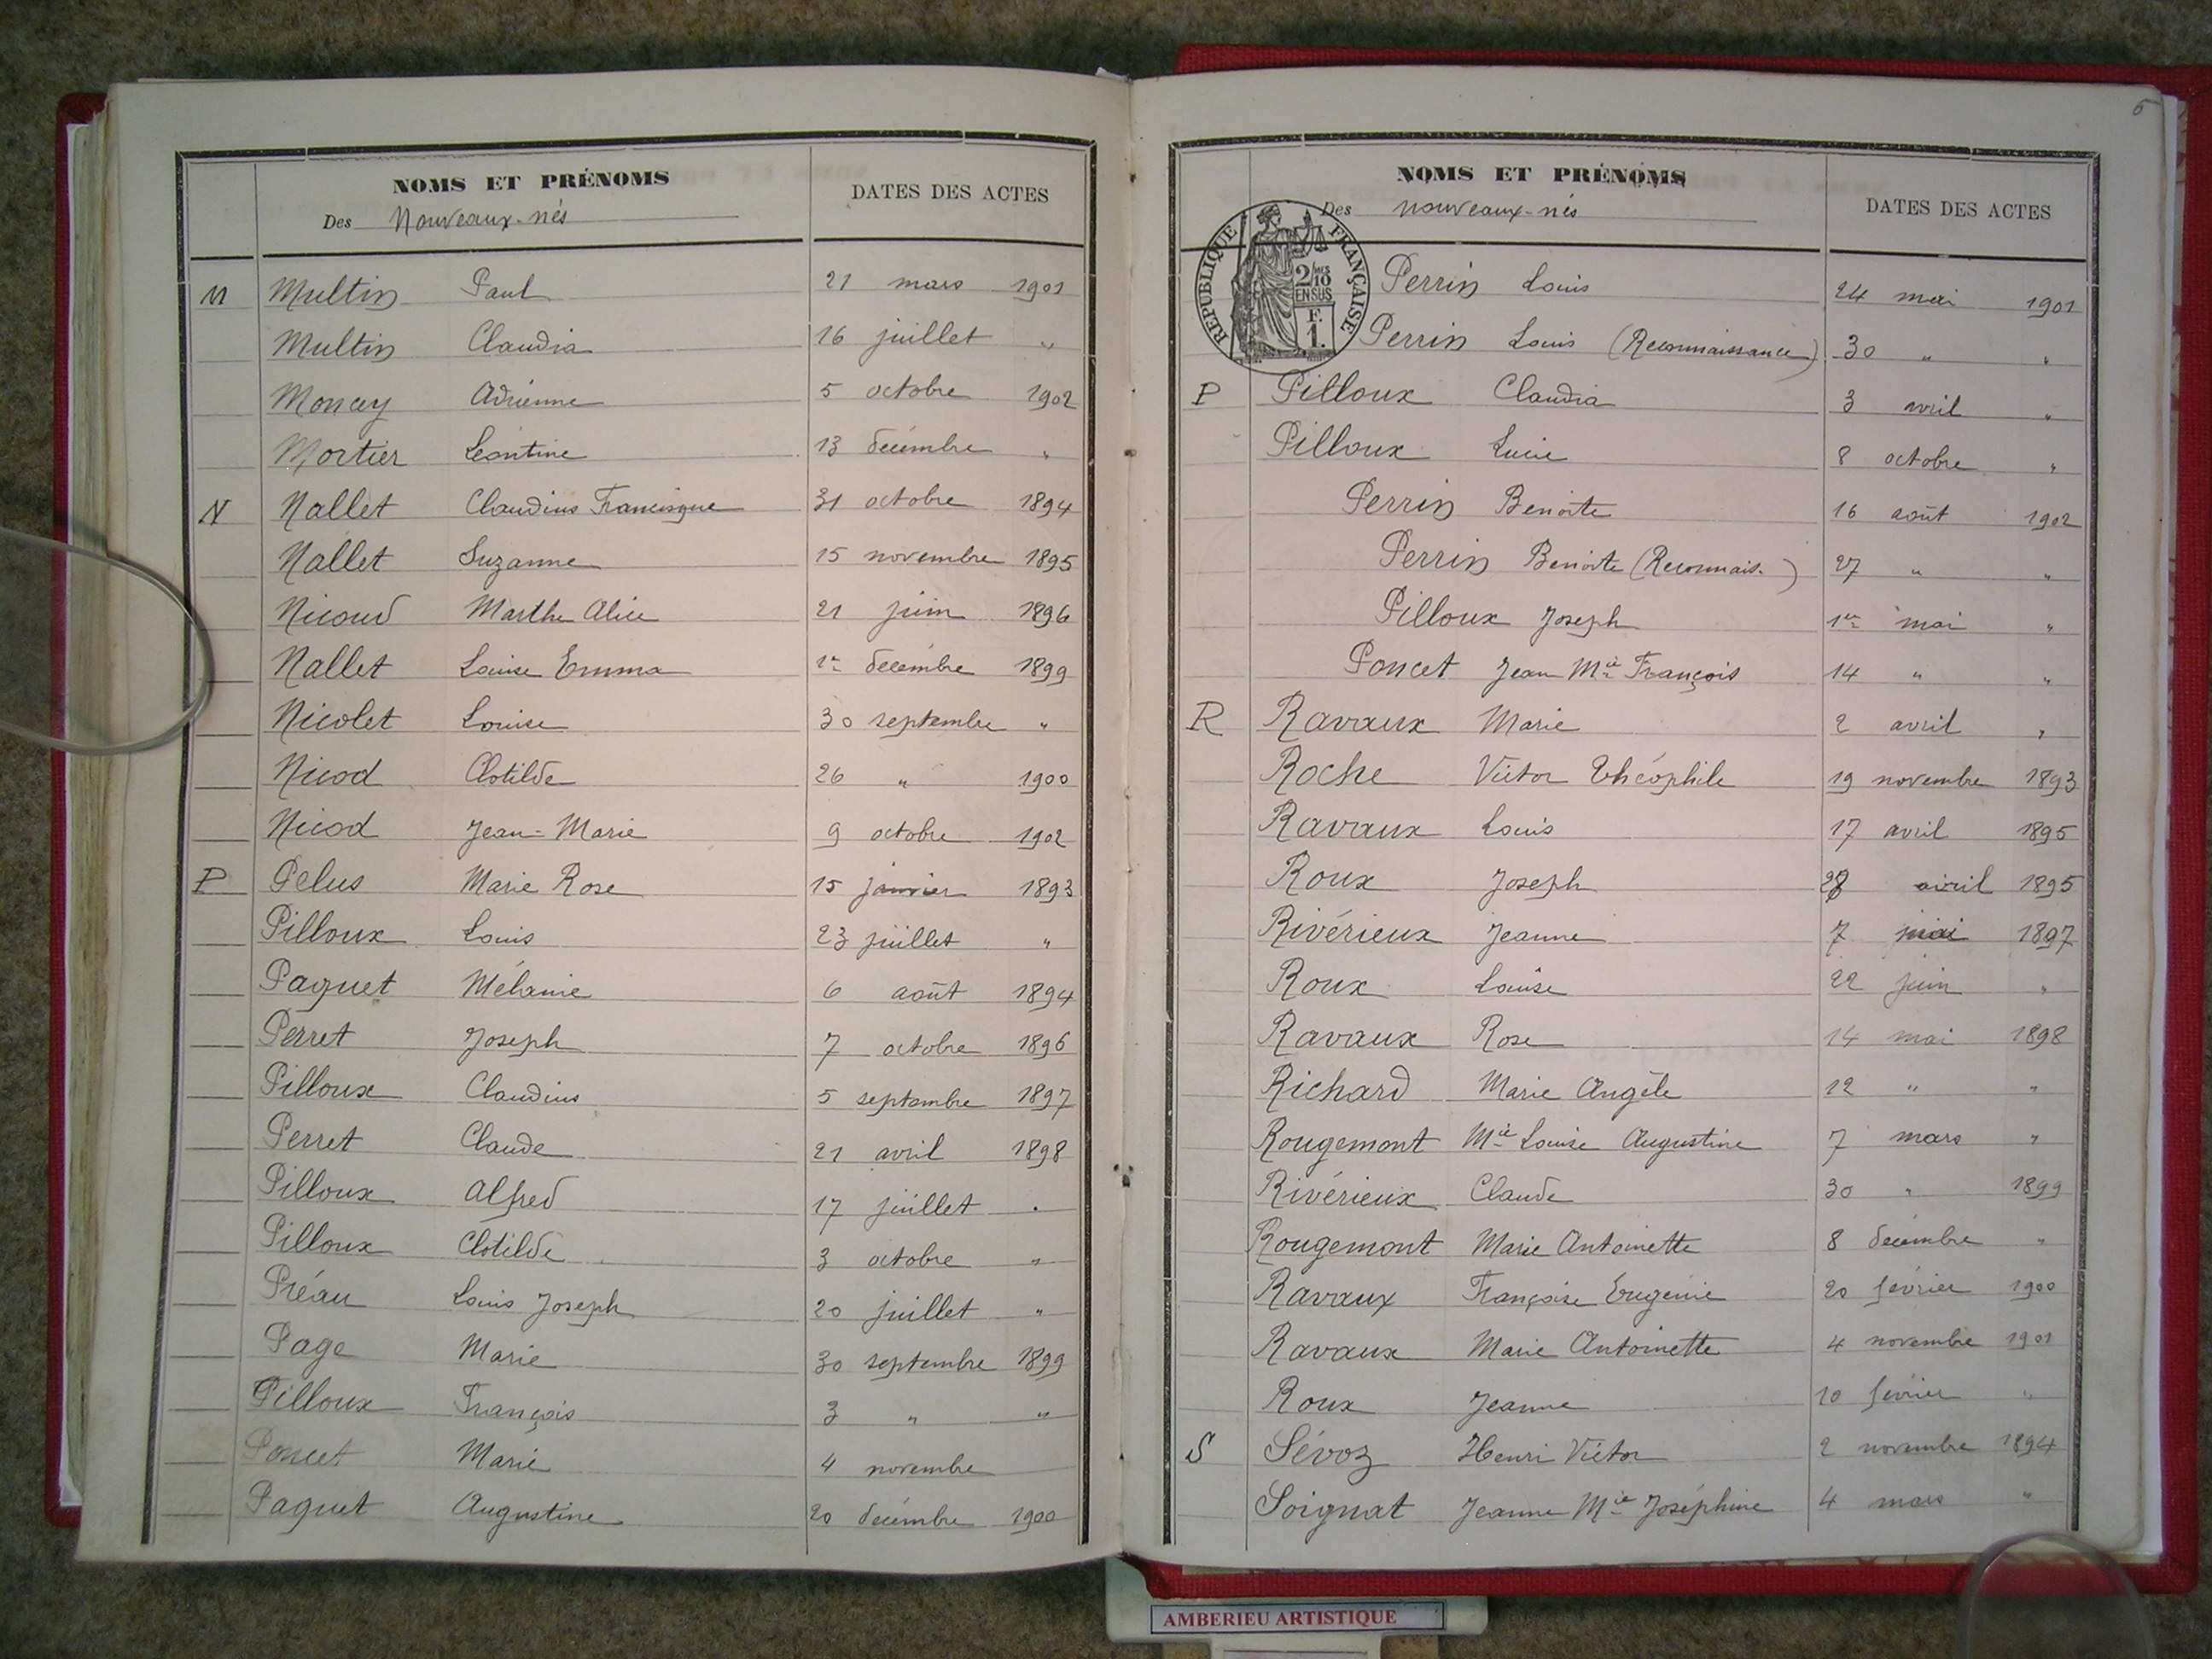 NOMS ET PRÉNOMS
Des Nouveaux-nés
DATES DES ACTES
M Multin Paul 21 mars 1901
Multin Claudia 16 juillet "
Moncey Adrienne 5 octobre 1902
Mortier Léontine 13 décembre "
N Nallet Claudius Francisque 31 octobre 1894
Nallet Suzanne 15 novembre 1895
Nicoud Marthe Alice 21 juin 1896
Nallet Louise Emma 1er décembre 1899
Nicolet Louise 30 septembre "
Nicod Clotilde 26 " 1900
Nicod Jean-Marie 9 octobre 1902
P Pelus Marie Rose 15 janvier 1893
Pilloux Louis 23 juillet "
Paquet Mélanie 6 août 1894
Perret Joseph 7 octobre 1896
Pilloux Claudius 5 septembre 1897
Perret Claude 21 avril 1898
Pilloux Alfred 17 juillet "
Pilloux Clotilde 3 octobre "
Préau Louis Joseph 20 juillet "
Page Marie 30 septembre 1899
Pilloux François 3 " "
Poncet Marie 4 novembre
Paquet Augustine 20 décembre 1900
5
NOMS ET PRÉNOMS
Des nouveaux-nés
DATES DES ACTES
REPUBLIQUE FRANÇAISE
2/10 EN SUS
F. 1.
Perrin Louis 24 mai 1901
Perrin Louis (Reconnaissance) 30 " "
P Pilloux Claudia 3 avril "
Pilloux Lucie 8 octobre "
Perrin Benoite 16 août 1902
Perrin Benoite (Reconnais.) 27 " "
Pilloux Joseph 1er mai "
Poncet Jean Mie François 14 " "
R Ravaux Marie 2 avril "
Roche Victor Théophile 19 novembre 1893
Ravaux Louis 17 avril 1895
Roux Joseph avril 1895
Rivérieux Jeanne 7 mai 1897
Roux Louise 22 juin "
Ravaux Rose 14 mai 1898
Richard Marie Angèle 12 " "
Rougemont Mie Louise Augustine 7 mars "
Rivérieux Claude 30 " 1899
Rougemont Marie Antoinette 8 décembre "
Ravaux Françoise Eugénie 20 février 1900
Ravaux Marie Antoinette 4 novembre 1901
Roux Jeanne 10 février "
S Sévoz Henri Victor 2 novembre 1894
Soignat Jeanne Mie Joséphine 4 mars "
AMBERIEU ARTISTIQUE